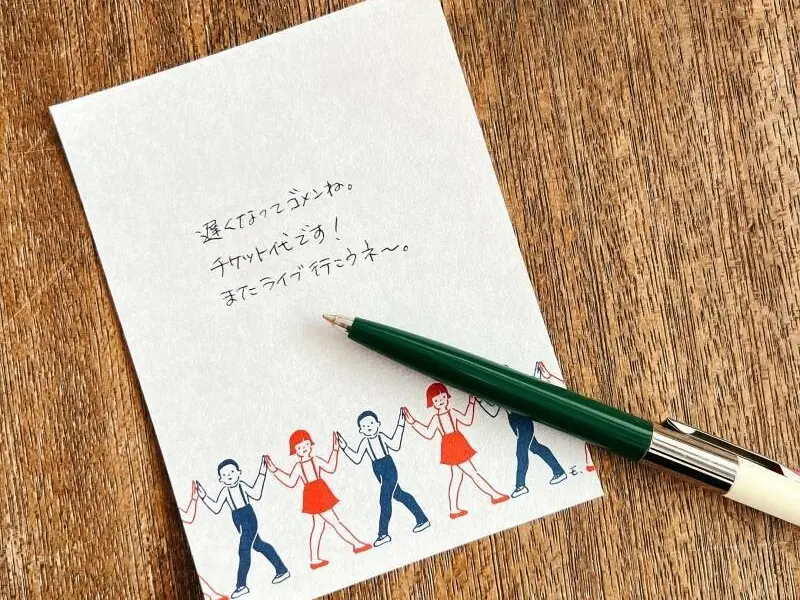 遅くなってゴメンね。
チケット代です!
またライブ行こうネ〜。
モ.